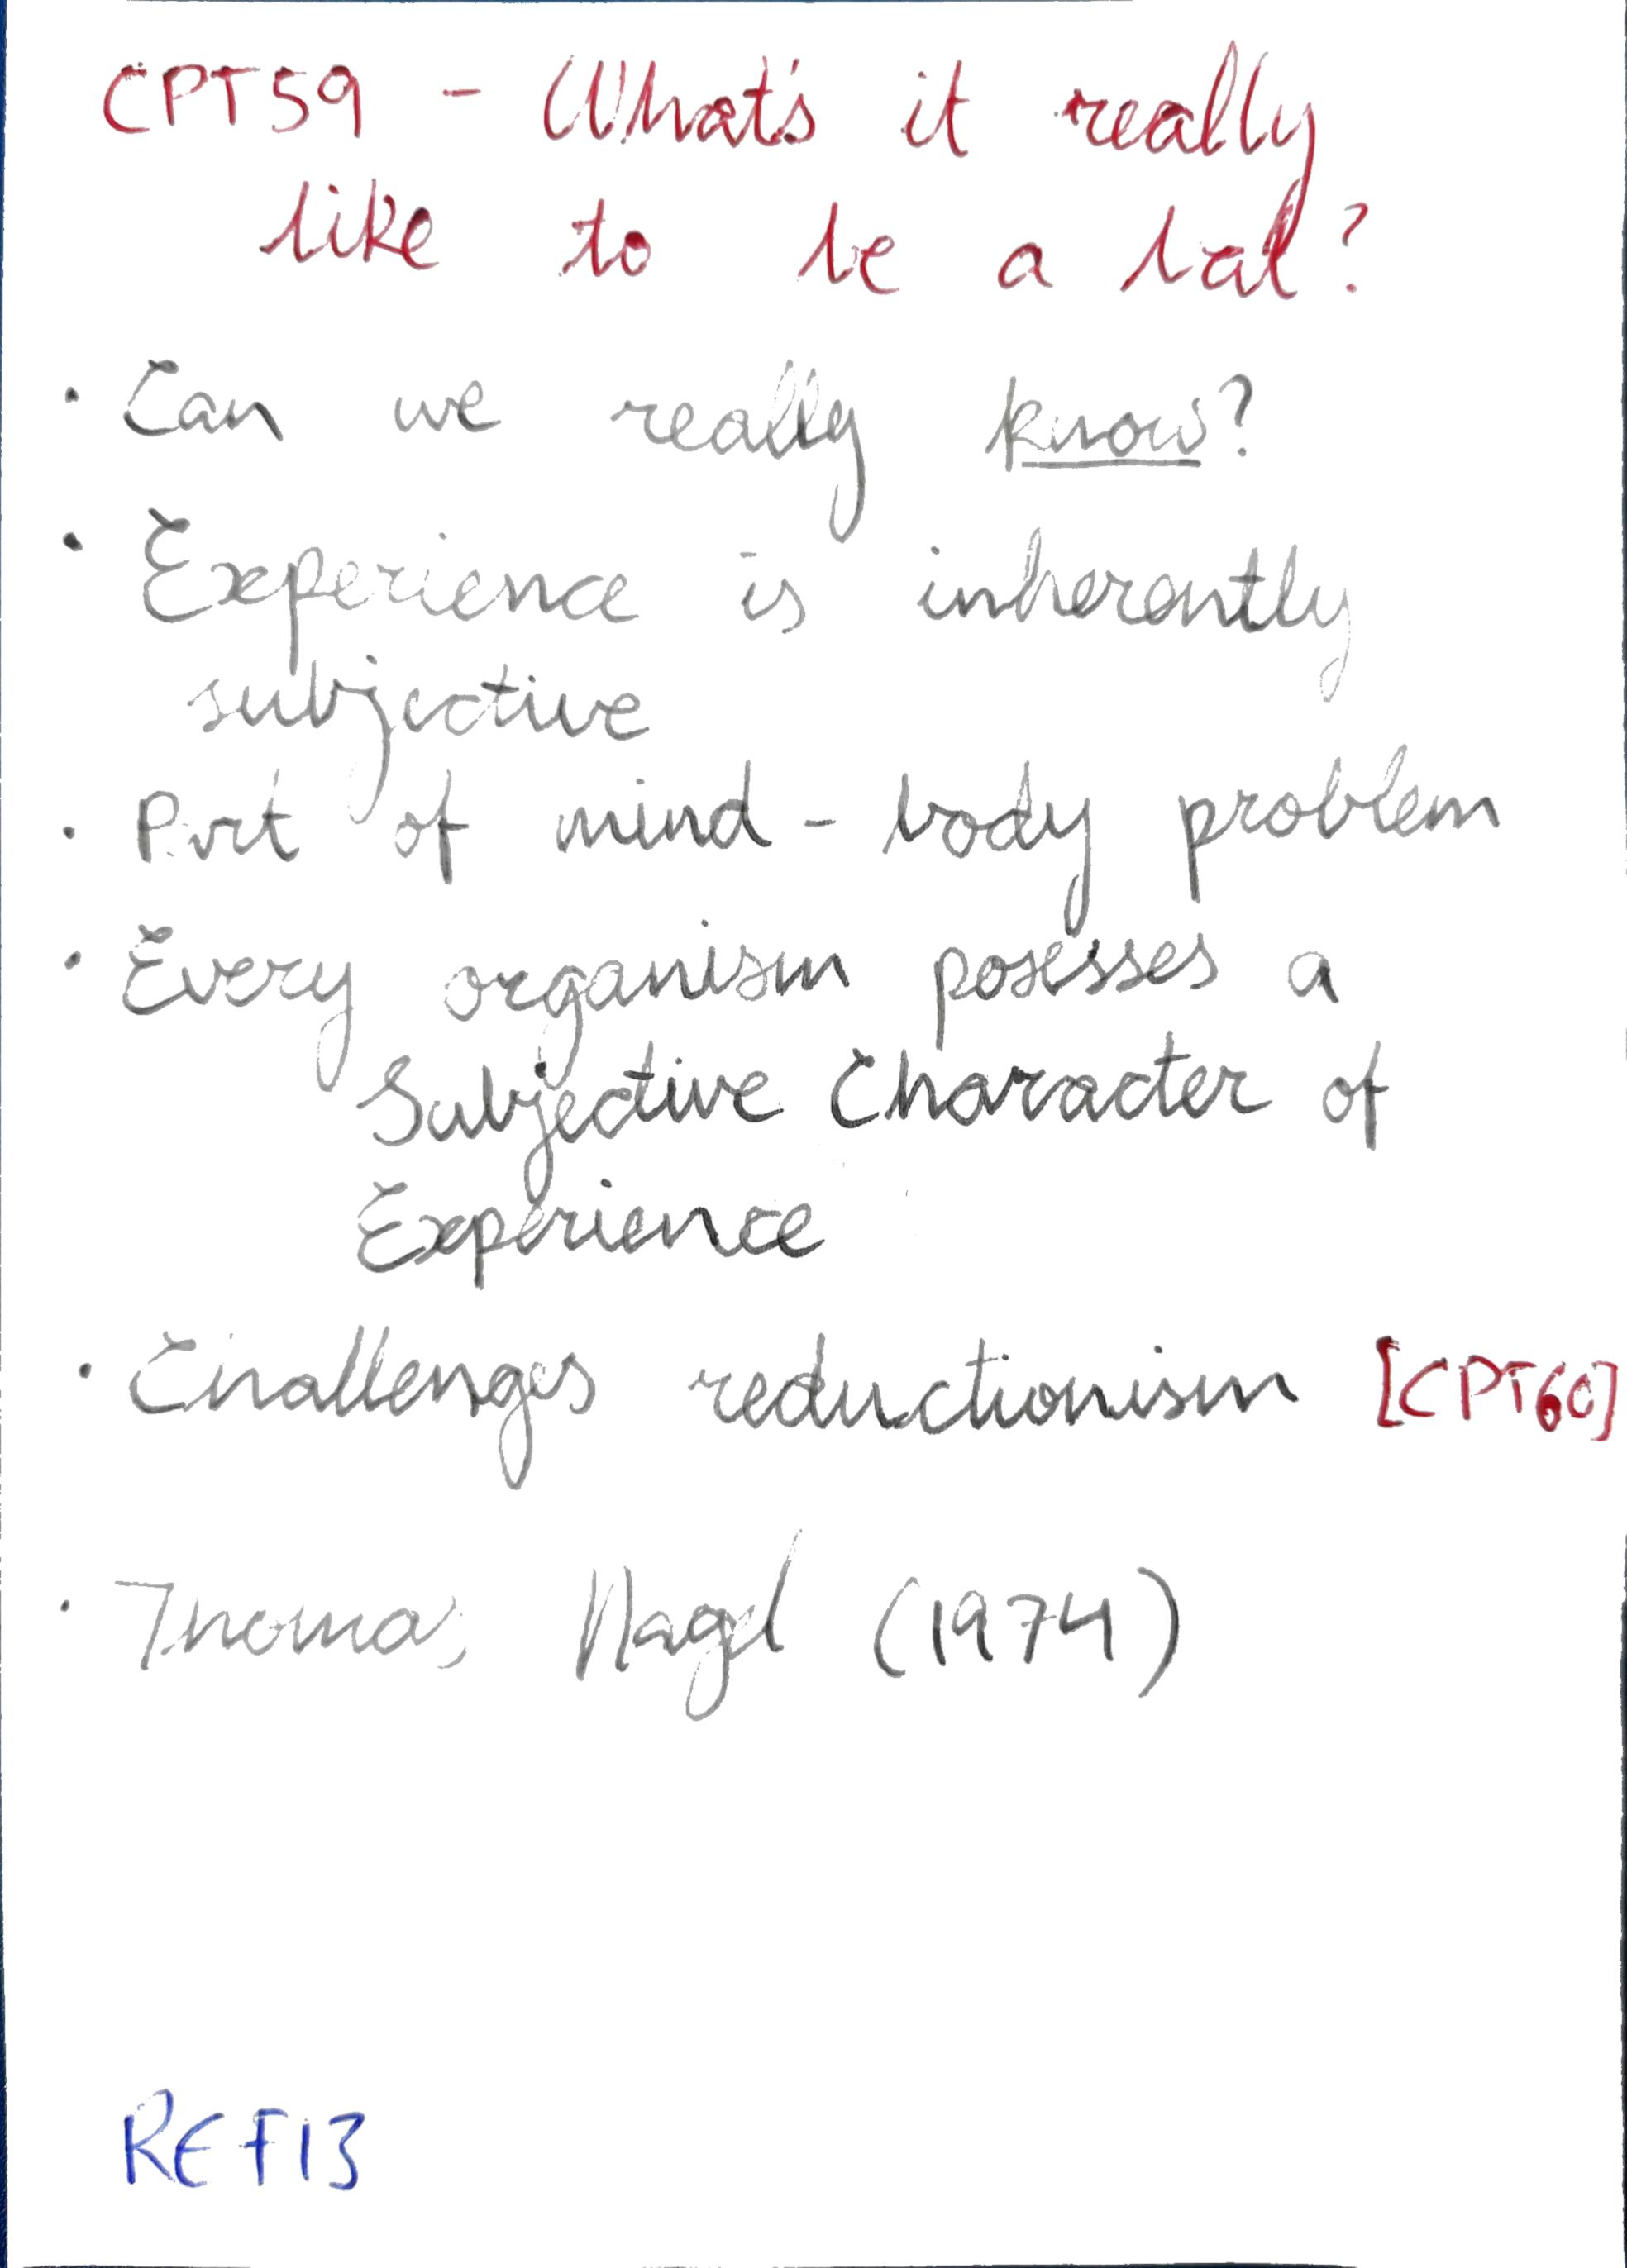 CPT59 - What's it really
like to be a bat?
· Can we really know?
· Experience is inherently
subjective
· Part of mind-body problem
· Every organism posesses a
Subjective Character of
Experience
· Challenges reductionism [CPT60]
· Thomas Nagel (1974)
REF13